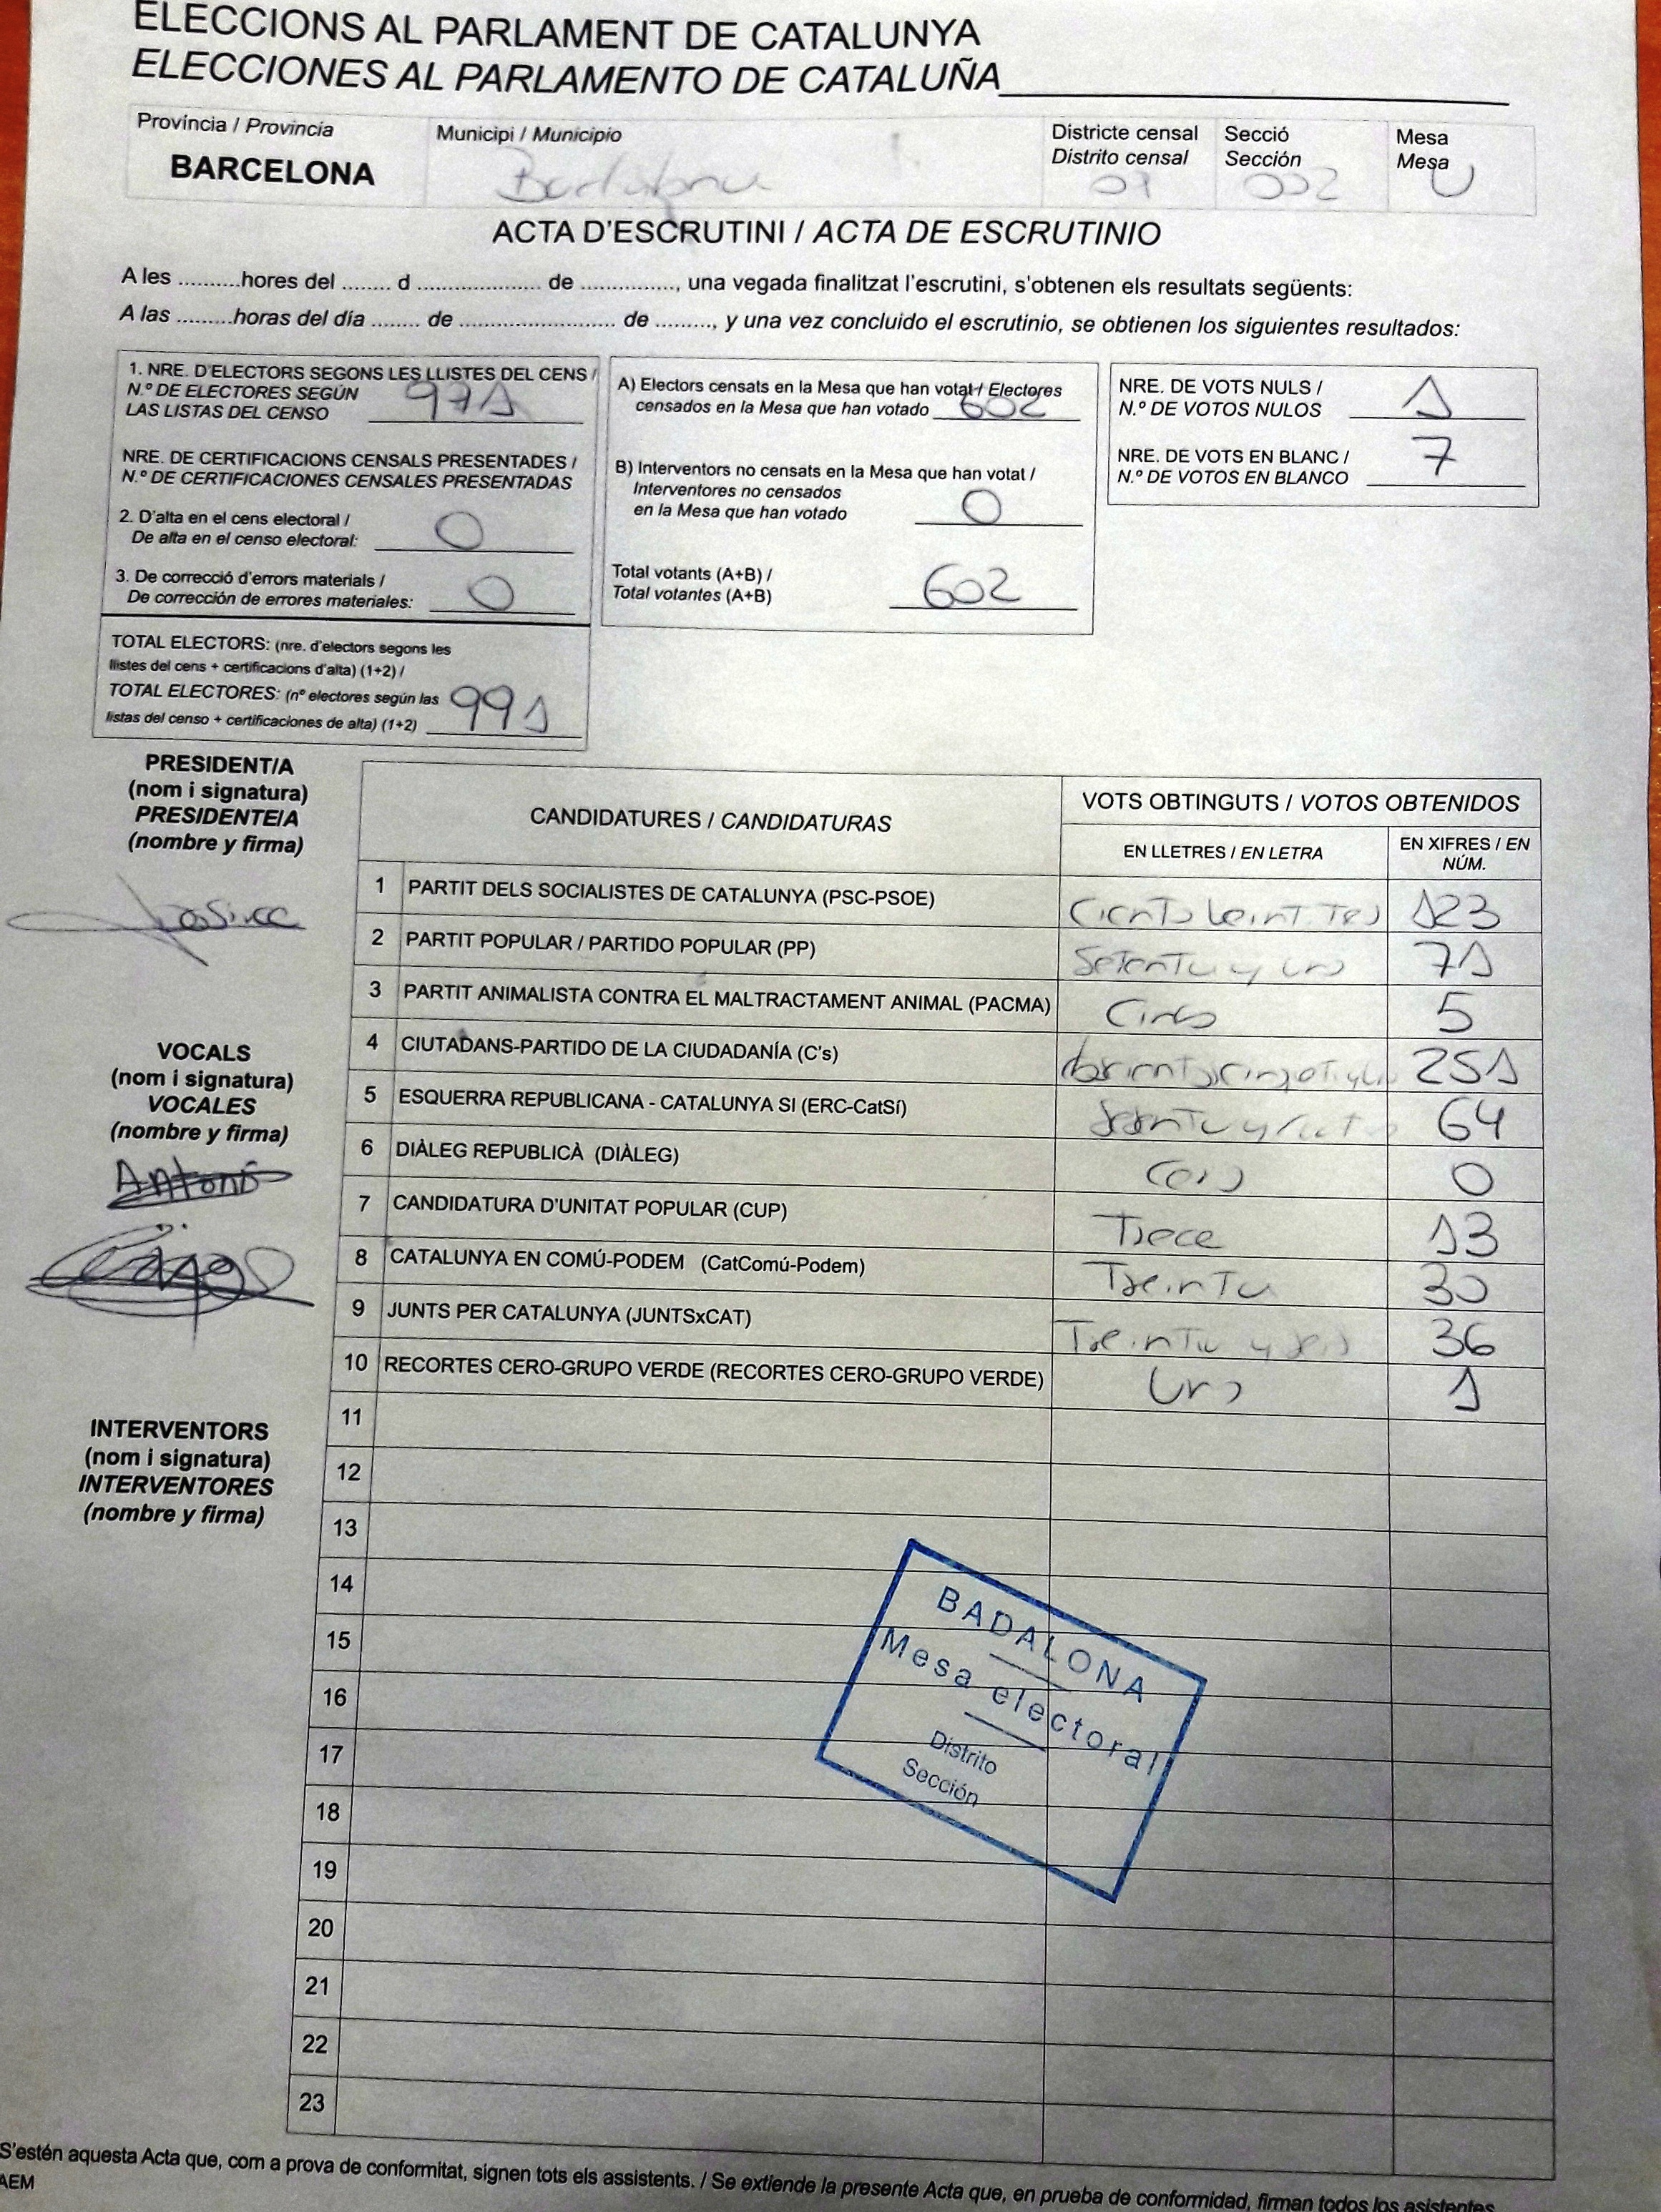 ELECCIONS AL PARLAMENT DE CATALUNYA
ELECCIONES AL PARLAMENTO DE CATALUÑA
Província / Provincia
BARCELONA
Municipi / Municipio
Badalona
Districte censal
Distrito censal
Secció
Sección
002
Mesa
Mesa
U
ACTA D'ESCRUTINI / ACTA DE ESCRUTINIO
A les ..........hores del ........ d ..................... de ................, una vegada finalitzat l'escrutini, s'obtenen els resultats següents:
A las .........horas del día ........ de ........................... de ........., y una vez concluido el escrutinio, se obtienen los siguientes resultados:
1. NRE. D'ELECTORS SEGONS LES LLISTES DEL CENS /
N.º DE ELECTORES SEGÚN
LAS LISTAS DEL CENSO 971
NRE. DE CERTIFICACIONS CENSALS PRESENTADES /
N.º DE CERTIFICACIONES CENSALES PRESENTADAS
2. D'alta en el cens electoral /
De alta en el censo electoral: 0
3. De correcció d'errors materials /
De corrección de errores materiales: 0
TOTAL ELECTORS: (nre. d'electors segons les
llistes del cens + certificacions d'alta) (1+2) /
TOTAL ELECTORES: (nº electores según las
listas del censo + certificaciones de alta) (1+2) 991
A) Electors censats en la Mesa que han votat / Electores
censados en la Mesa que han votado 602
B) Interventors no censats en la Mesa que han votat /
Interventores no censados
en la Mesa que han votado 0
Total votants (A+B) /
Total votantes (A+B) 602
NRE. DE VOTS NULS /
N.º DE VOTOS NULOS 1
NRE. DE VOTS EN BLANC /
N.º DE VOTOS EN BLANCO 7
PRESIDENT/A
(nom i signatura)
PRESIDENTE/A
(nombre y firma)
VOCALS
(nom i signatura)
VOCALES
(nombre y firma)
Antonio
INTERVENTORS
(nom i signatura)
INTERVENTORES
(nombre y firma)
CANDIDATURES / CANDIDATURAS
VOTS OBTINGUTS / VOTOS OBTENIDOS
EN LLETRES / EN LETRA
EN XIFRES / EN
NÚM.
1 PARTIT DELS SOCIALISTES DE CATALUNYA (PSC-PSOE) 123
2 PARTIT POPULAR / PARTIDO POPULAR (PP) Setenta y uno 71
3 PARTIT ANIMALISTA CONTRA EL MALTRACTAMENT ANIMAL (PACMA) Cinco 5
4 CIUTADANS-PARTIDO DE LA CIUDADANÍA (C's) 251
5 ESQUERRA REPUBLICANA - CATALUNYA SI (ERC-CatSí) 64
6 DIÀLEG REPUBLICÀ (DIÀLEG) Cero 0
7 CANDIDATURA D'UNITAT POPULAR (CUP) Trece 13
8 CATALUNYA EN COMÚ-PODEM (CatComú-Podem) Treinta 30
9 JUNTS PER CATALUNYA (JUNTSxCAT) Treinta y seis 36
10 RECORTES CERO-GRUPO VERDE (RECORTES CERO-GRUPO VERDE) Uno 1
11
12
13
14
15
16
17
18
19
20
21
22
23
BADALONA
Mesa electoral
Distrito
Sección
S'estén aquesta Acta que, com a prova de conformitat, signen tots els assistents. / Se extiende la presente Acta que, en prueba de conformidad, firman todos los asistentes
AEM